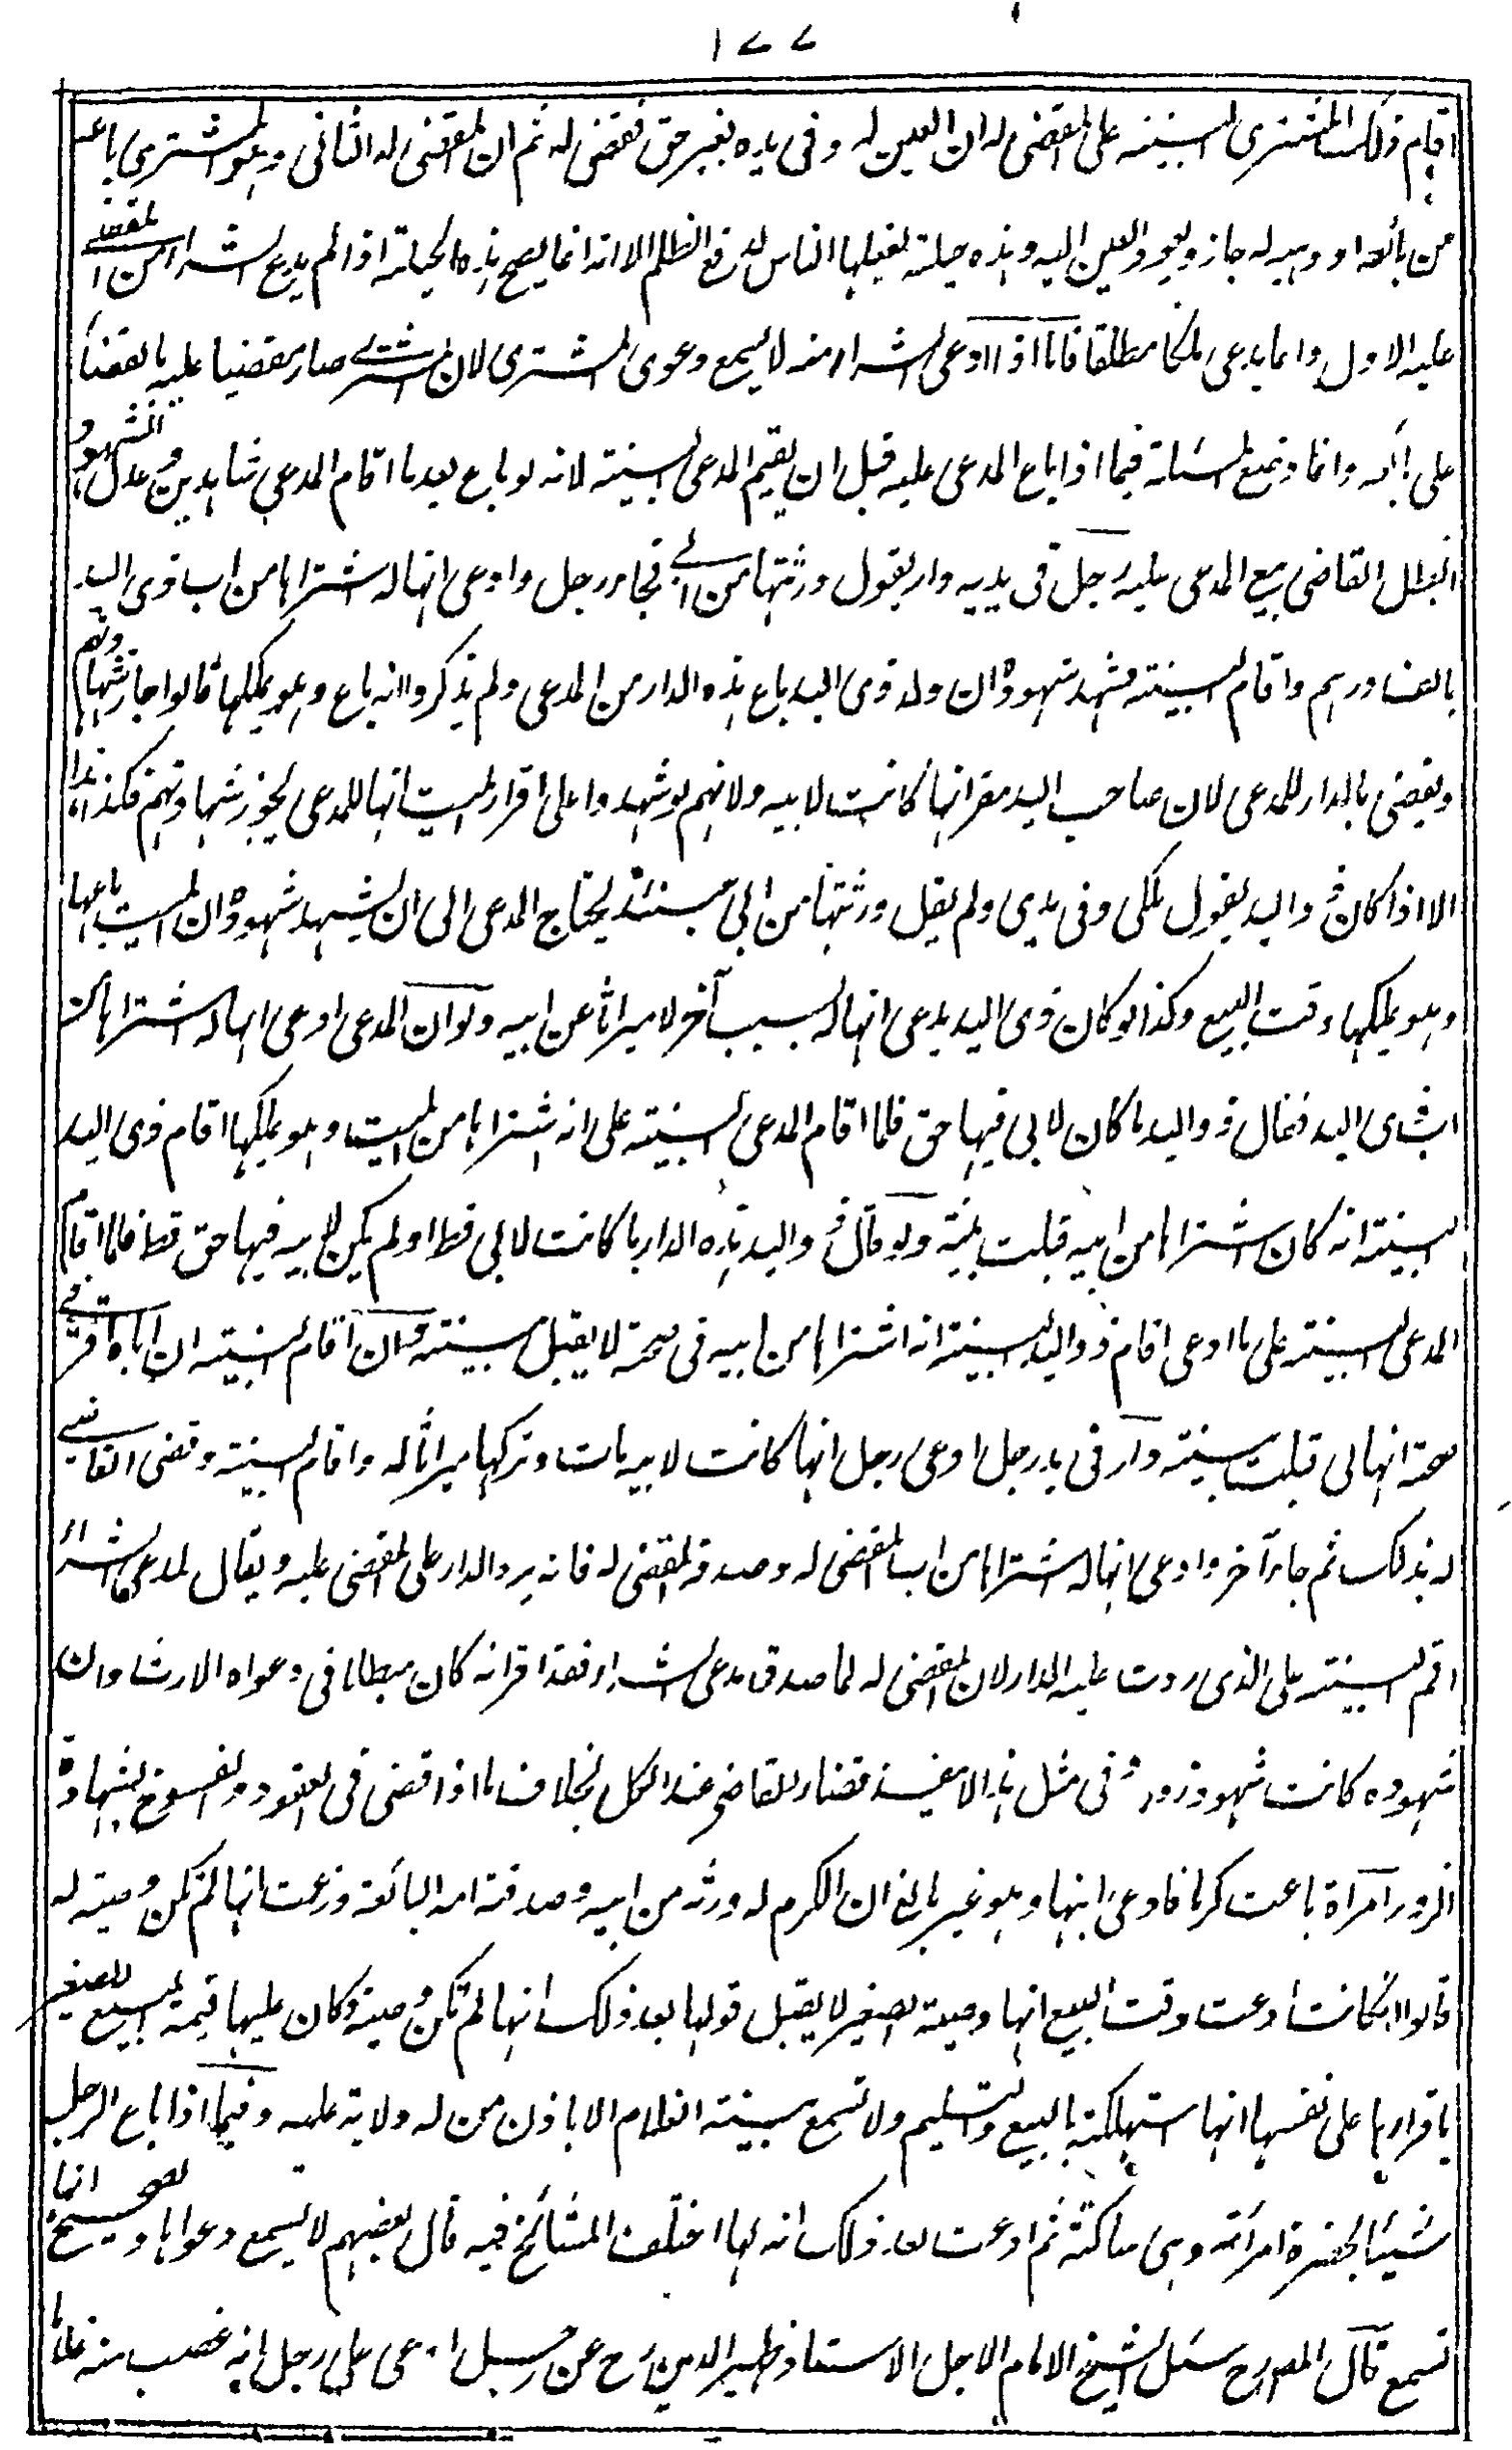 ١٧٧
اقام ذلك المشترى البينة على المقضى له ان العين له وفى يده بغير حق فقضى له ثم ان المقضى له الثانى وهو المشترى باعه
من بائعه او وهبه له جاز ويعود العين اليه وهذه حيلة يفعلها الناس لدفع الظلم الا انه انما يصح هذه الحيلة اذا لم يدع الشراء من المقضى
عليه الاول وانما يدعى ملكا مطلقا فاما اذا ادعى الشراء منه لا يسمع دعوى المشترى لان المشترى صار مقضيا عليه بالقضاء
على بائعه وانما وضع المسئلة فيما اذا باع المدعى عليه قبل ان يقيم المدعى البينة لانه لو باع بعد ما اقام المدعى شاهدين وعدل الشهود
ابطل القاضى بيع المدعى عليه رجل فى يديه دار يقول ورثتها من ابى فجاء رجل وادعى انها له اشتراها من اب ذى اليد
بالف درهم واقام البينة فشهد شهوده ان والد ذى اليد باع هذه الدار من المدعى ولم يذكروا انه باع وهو يملكها قالوا جاز شهادتهم
ويقضى بالدار للمدعى لان صاحب اليد مقر انها كانت لابيه ولانهم لو شهدوا على اقرار الميت انها للمدعى يجوز شهادتهم فكذا هذا
الا اذا كان ذو اليد يقول ملكى وفى يدى ولم يقل ورثتها من ابى حينئذ يحتاج المدعى الى ان يشهد شهوده ان الميت باعها
وهو يملكها وقت البيع وكذا لو كان ذى اليد يدعى انها له بسبب آخر لا ميراثا عن ابيه ولو ان المدعى ادعى انها له اشتراها من
اب ذى اليد فقال ذو اليد ما كان لابى فيها حق فلما اقام المدعى البينة على انه اشتراها من الميت وهو يملكها اقام ذى اليد
البينة انه كان اشتراها من ابيه قبلت بينته ولو قال ذو اليد هذه الدار ما كانت لابى قط او لم يكن لابيه فيها حق قط فلما اقام
المدعى البينة على ما ادعى اقام ذو اليد البينة انه اشتراها من ابيه فى صحته لا يقبل بينته وان اقام البينة ان اباه اقر فى
صحته انها لى قبلت بينته دار فى يد رجل ادعى رجل انها كانت لابيه مات وتركها ميراثا له واقام البينة وقضى القاضى
له بذلك ثم جاء آخر وادعى انها له اشتراها من اب المقضى له وصدقه المقضى له فانه يرد الدار على المقضى عليه ويقال لمدعى الشراء
اقم البينة على الذى ردت عليه الدار لان المقضى له لما صدق مدعى الشراء فقد اقر انه كان مبطلا فى دعواه الارث وان
شهوده كانت شهود زور وفى مثل هذا لا ينفذ قضاء القاضى عند الكل بخلاف ما اذا قضى فى العقود والفسوخ بشهادة
الزور امرأة باعت كرما فادعى ابنها وهو غير بالغ ان الكرم له ورثه من ابيه وصدقته امه البائعة وزعمت انها لم تكن وصية له
قالوا ان كانت ادعت وقت البيع انها وصية الصغير لا يقبل قولها بعد ذلك انها لم تكن وصية وكان عليها قيمة المبيع للصغير
باقرارها على نفسها انها استهلكته بالبيع والتسليم ولا تسمع بينة الغلام الا باذن من له ولاية عليه وفيما اذا باع الرجل
شيئا بحضرة امرأته وهى ساكتة ثم ادعت بعد ذلك انه لها اختلف المشائخ فيه قال بعضهم لا يسمع دعواها والصحيح انها
تسمع قال المصرح سئل الشيخ الامام الاجل الاستاذ ظهير الدين رح عن رجل ادعى على رجل انه غصب منه غلاما